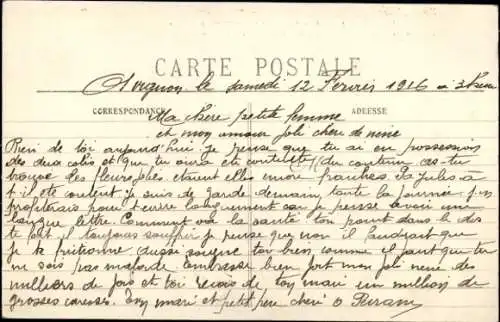 CARTE POSTALE
Avignon le samedi 12 Février 1916 à 3 heu
CORRESPONDANCE ADRESSE
Ma chère petite femme
et mon amour joli cheri de nine
Rien de toi aujourd'hui je pense que tu ai en possession
des deux colis et que tu aura ete contente du contenu as-tu
trouvé les fleurs jolies etaient elles encore fraiches
t il ete content je suis de garde demain toute la journée j'en
profiterais pour t'ecrire longuement car je pense avoir une
longue lettre. Comment va la santé ton point dans le dos
te fait il toujours souffrir je pense que non il faudrait que
je te frictionne aussi soigne ton bien comme il faut que tu
ne sois pas malade embrasse bien fort mon joli nene des
milliers de fois et toi recois de ton mari un million de
grosses caresses. Ton mari et petit pere cheri